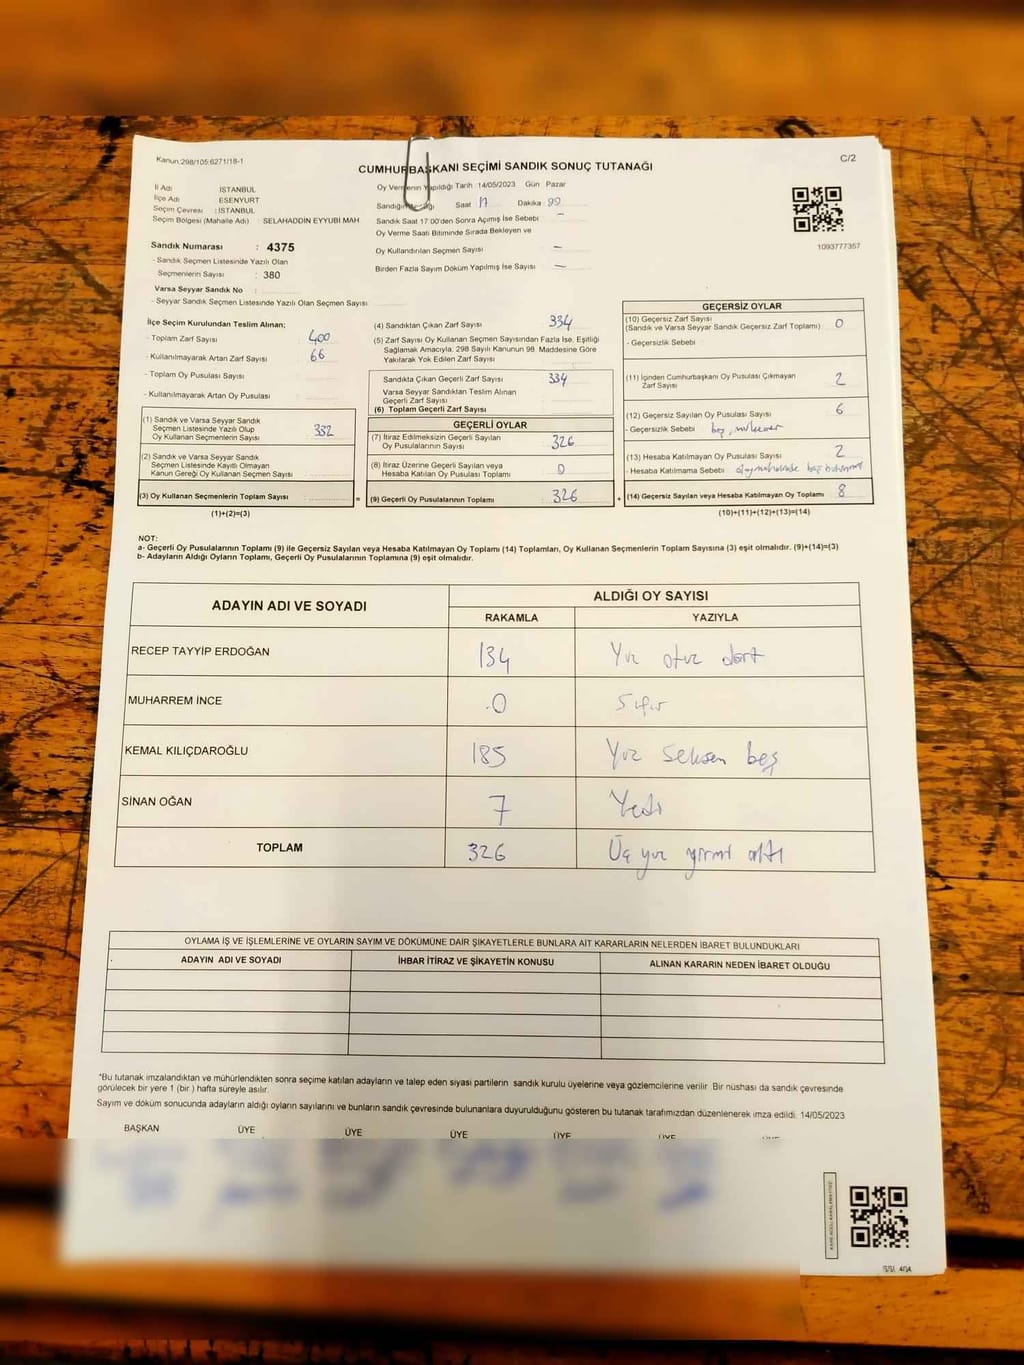 Kanun:298/105:6271/18-1
C/2
CUMHURBAŞKANI SEÇİMİ SANDIK SONUÇ TUTANAĞI
İl Adı İSTANBUL
İlçe Adı ESENYURT
Seçim Çevresi : İSTANBUL
Seçim Bölgesi (Mahalle Adı) : SELAHADDİN EYYUBİ MAH
Sandık Numarası : 4375
- Sandık Seçmen Listesinde Yazılı Olan
Seçmenlerin Sayısı : 380
Varsa Seyyar Sandık No :
- Seyyar Sandık Seçmen Listesinde Yazılı Olan Seçmen Sayısı
Oy Vermenin Yapıldığı Tarih :14/05/2023 Gün Pazar
Sandığın Saat 17 Dakika
Sandık Saat 17:00'den Sonra Açımış İse Sebebi –
Oy Verme Saati Bitiminde Sırada Bekleyen ve
Oy Kullandırılan Seçmen Sayısı –
Birden Fazla Sayım Döküm Yapılmış İse Sayısı –
1093777357
İlçe Seçim Kurulundan Teslim Alınan;
- Toplam Zarf Sayısı 400
- Kullanılmayarak Artan Zarf Sayısı 66
- Toplam Oy Pusulası Sayısı
- Kullanılmayarak Artan Oy Pusulası
(1) Sandık ve Varsa Seyyar Sandık
Seçmen Listesinde Yazılı Olup
Oy Kullanan Seçmenlerin Sayısı 332
(2) Sandık ve Varsa Seyyar Sandık
Seçmen Listesinde Kayıtlı Olmayan
Kanun Gereği Oy Kullanan Seçmen Sayısı
(3) Oy Kullanan Seçmenlerin Toplam Sayısı =
(1)+(2)=(3)
(4) Sandıktan Çıkan Zarf Sayısı 334
(5) Zarf Sayısı Oy Kullanan Seçmen Sayısından Fazla İse, Eşitliği
Sağlamak Amacıyla; 298 Sayılı Kanunun 98 Maddesine Göre
Yakılarak Yok Edilen Zarf Sayısı
Sandıkta Çıkan Geçerli Zarf Sayısı 334
Varsa Seyyar Sandıktan Teslim Alınan
Geçerli Zarf Sayısı
(6) Toplam Geçerli Zarf Sayısı
GEÇERLİ OYLAR
(7) İtiraz Edilmeksizin Geçerli Sayılan
Oy Pusulasının Sayısı 326
(8) İtiraz Üzerine Geçerli Sayılan veya
Hesaba Katılan Oy Pusulası Toplamı 0
(9) Geçerli Oy Pusulalarının Toplamı 326 +
GEÇERSİZ OYLAR
(10) Geçersiz Zarf Sayısı
(Sandık ve Varsa Seyyar Sandık Geçersiz Zarf Toplamı) 0
- Geçersizlik Sebebi
(11) İçinden Cumhurbaşkanı Oy Pusulası Çıkmayan
Zarf Sayısı 2
(12) Geçersiz Sayılan Oy Pusulası Sayısı 6
- Geçersizlik Sebebi boş,
(13) Hesaba Katılmayan Oy Pusulası Sayısı 2
- Hesaba Katılmama Sebebi
(14) Geçersiz Sayılan veya Hesaba Katılmayan Oy Toplamı 8
(10)+(11)+(12)+(13)=(14)
NOT:
a- Geçerli Oy Pusulalarının Toplamı (9) ile Geçersiz Sayılan veya Hesaba Katılmayan Oy Toplamı (14) Toplamları, Oy Kullanan Seçmenlerin Toplam Sayısına (3) eşit olmalıdır. (9)+(14)=(3)
b- Adayların Aldığı Oyların Toplamı, Geçerli Oy Pusulalarının Toplamına (9) eşit olmalıdır.
ADAYIN ADI VE SOYADI
ALDIĞI OY SAYISI
RAKAMLA YAZIYLA
RECEP TAYYİP ERDOĞAN 134 Yüz otuz dört
MUHARREM İNCE 0 Sıfır
KEMAL KILIÇDAROĞLU 185 Yüz seksen beş
SİNAN OĞAN 7 Yedi
TOPLAM 326 Üç yüz yirmi altı
OYLAMA İŞ VE İŞLEMLERİNE VE OYLARIN SAYIM VE DÖKÜMÜNE DAİR ŞİKAYETLERLE BUNLARA AİT KARARLARIN NELERDEN İBARET BULUNDUKLARI
ADAYIN ADI VE SOYADI İHBAR İTİRAZ VE ŞİKAYETİN KONUSU ALINAN KARARIN NEDEN İBARET OLDUĞU
*Bu tutanak imzalandıktan ve mühürlendikten sonra seçime katılan adayların ve talep eden siyasi partilerin sandık kurulu üyelerine veya gözlemcilerine verilir. Bir nüshası da sandık çevresinde
görülecek bir yere 1 (bir ) hafta süreyle asılır.
Sayım ve döküm sonucunda adayların aldığı oyların sayılarını ve bunların sandık çevresinde bulunanlara duyurulduğunu gösteren bu tutanak tarafımızdan düzenlenerek imza edildi. 14/05/2023
BAŞKAN ÜYE ÜYE ÜYE ÜYE ÜYE